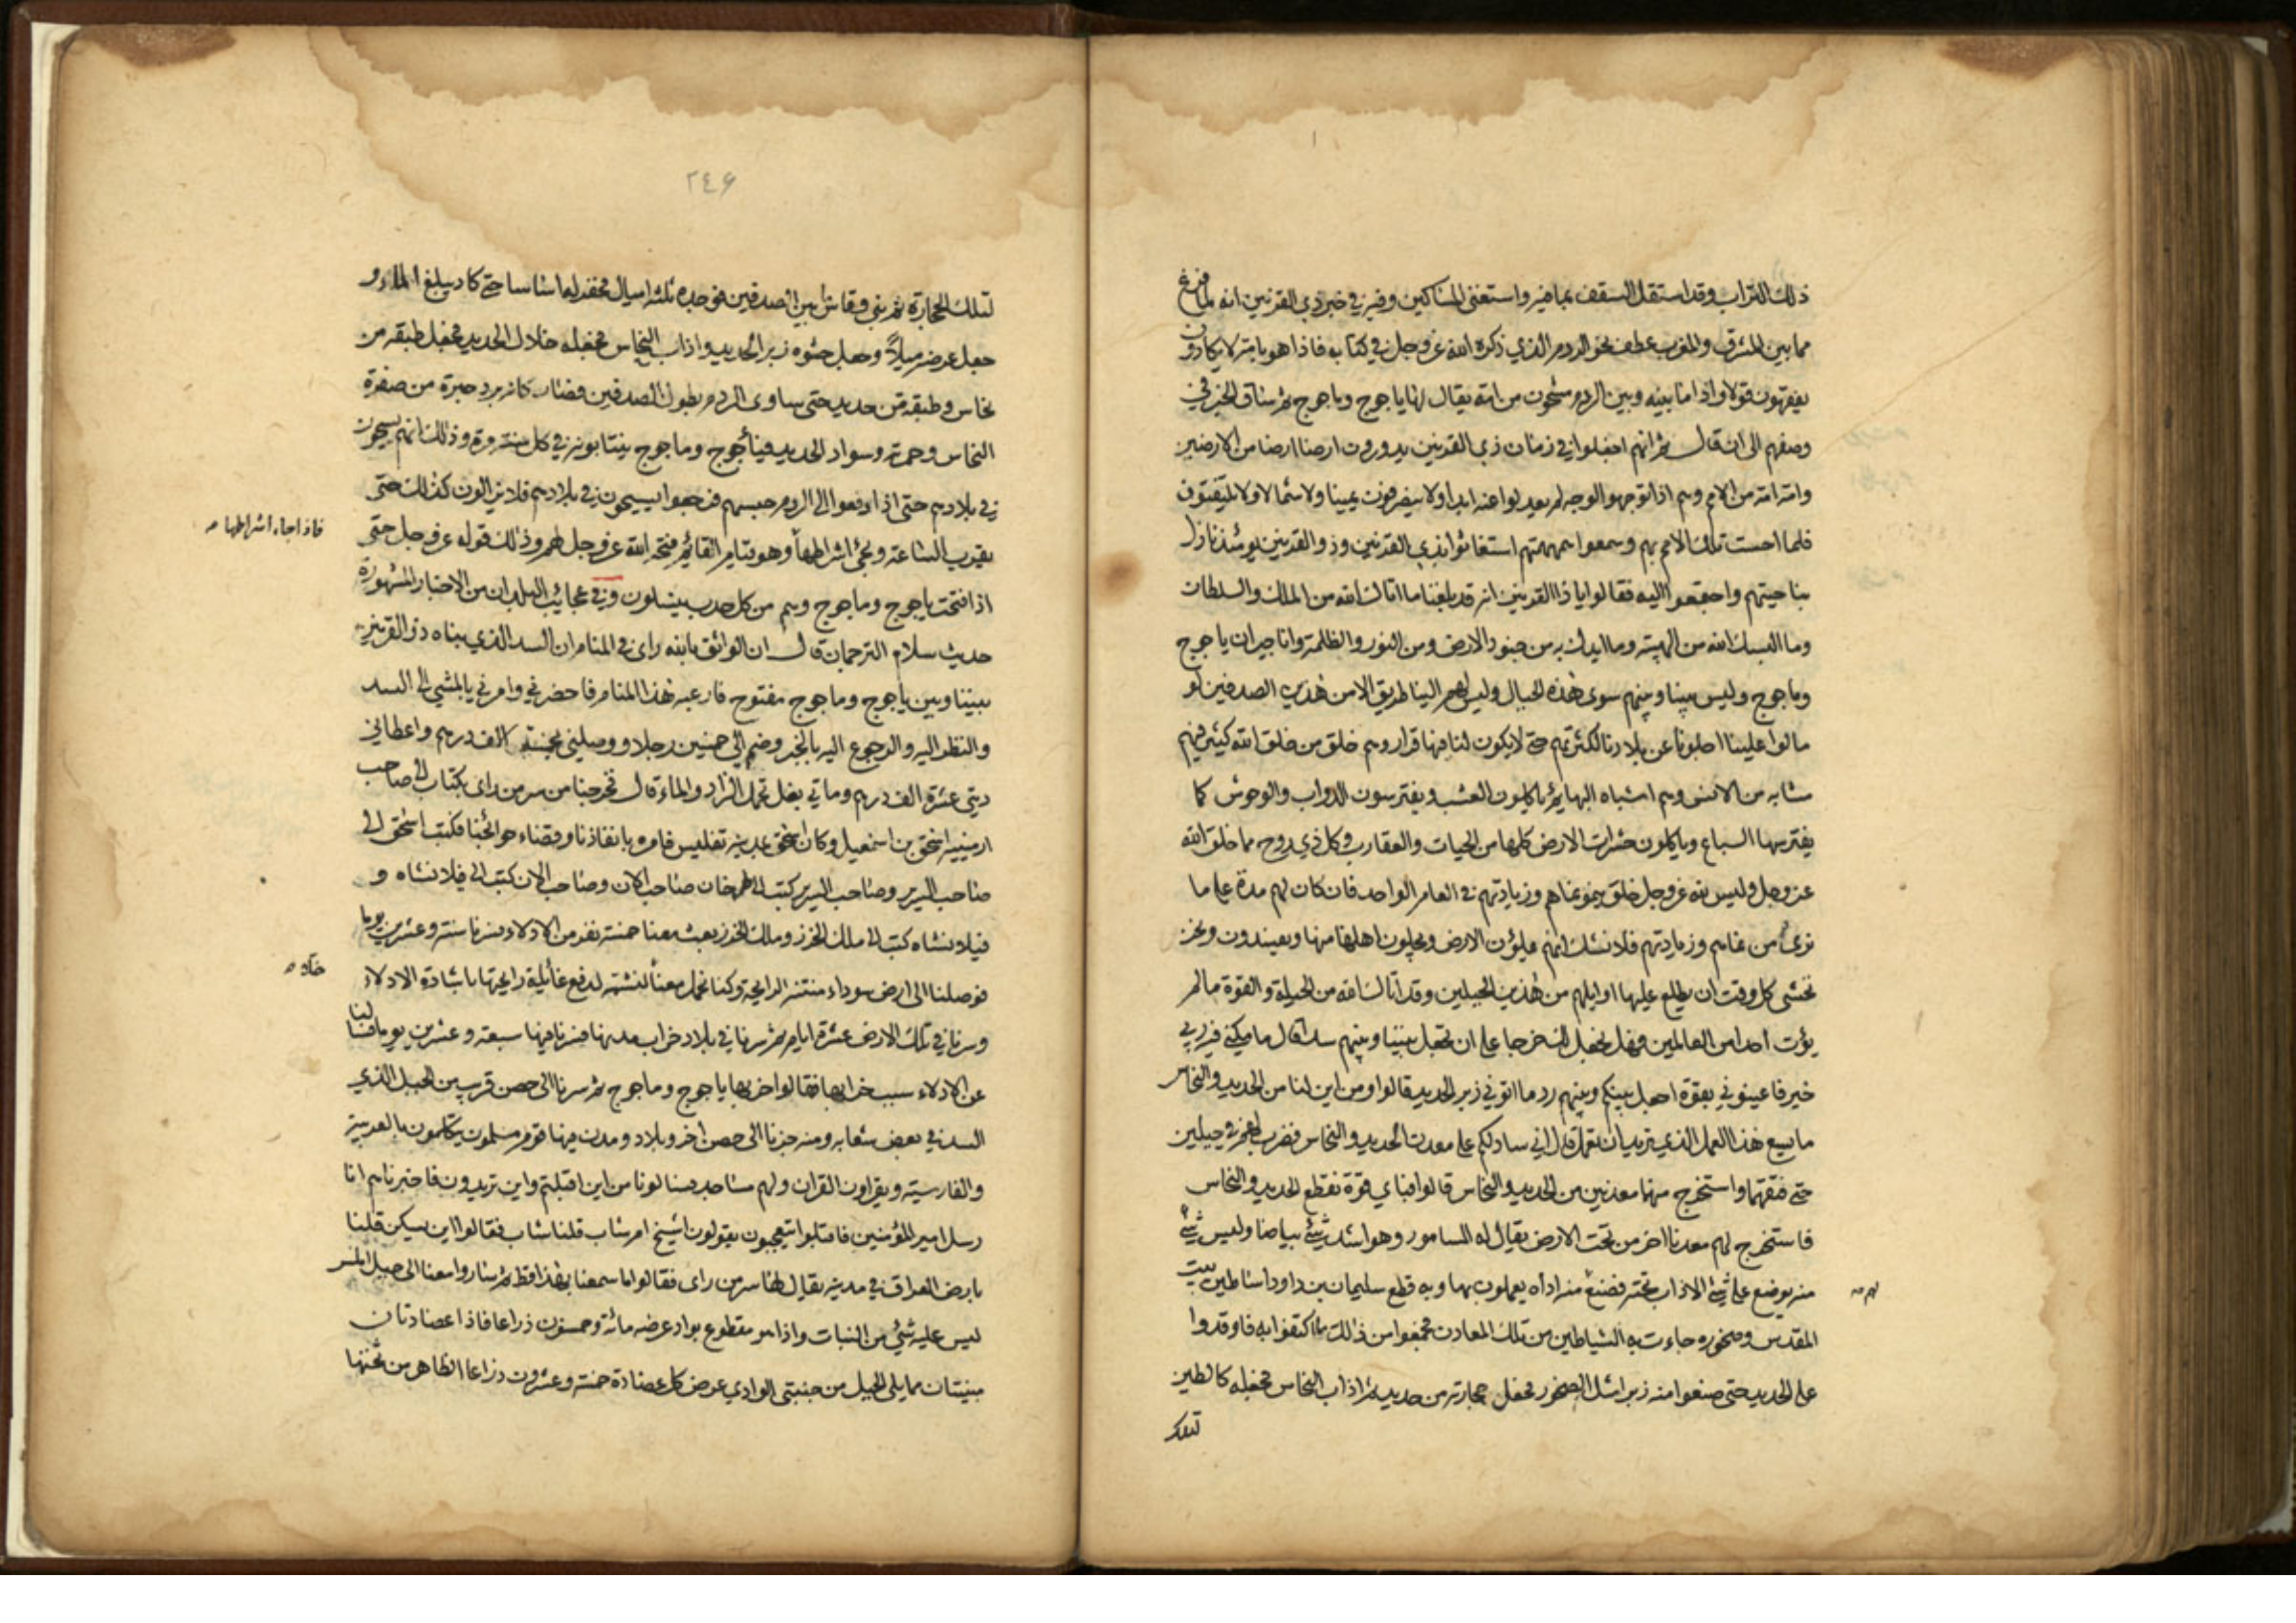 ذلك التراب وقد استقل السقف بما فيه واستغنى المساكين وفيه في خبر ذي القرنين انه لما فرغ
مما بين المشرق والمغرب عطف نحو الردم الذي ذكره الله عز وجل في كتابه فاذا هو بامة لا يكادون
يفقهون قولا واذا ما بينه وبين الردم مشحون من امة يقال لها ياجوج وماجوج ثم ساق الخبر في
وصفهم الى ان قال ثم انهم اجفلوا في زمان ذي القرنين يدورون ارضا ارضا من الارضين
وامة امة من الامم وهم اذا توجهوا لوجه لم يعدلوا عنه ابدا ولا ينصرفون يمينا ولا شمالا ولا يلتفتون
فلما احست تلك الامم بهم وسمعوا همهمتهم استغاثوا بذي القرنين وذو القرنين يومئذ نازل
بناحيتهم واجتمعوا اليه فقالوا يا ذا القرنين انه قد بلغنا ما اتاك الله من الملك والسلطان
وما البسك الله من الهيبة وما ايدك به من جنود الارض ومن النور والظلمة وانا جيران ياجوج
وماجوج وليس بيننا وبينهم سوى هذه الجبال وليس لهم الينا طريق الا من هذين الصدفين لو
مالوا علينا اجلونا عن بلادنا لكثرتهم حتى لا يكون لنا فيها قرار وهم خلق من خلق الله كثير فيهم
مشابه من الانس وهم اشباه البهائم ياكلون العشب ويفترسون الدواب والوحوش كما
يفترسها السباع وياكلون حشرات الارض كلها من الحيات والعقارب وكل ذي روح مما خلق الله
عز وجل وليس لله عز وجل خلق ينمو نماهم وزيادتهم في العام الواحد فان كان لهم مدة على ما
نرى من نمائهم وزيادتهم فلا نشك انهم يملؤن الارض ويجلون اهلها منها ويفسدون ونحن
نخشى كل وقت ان يطلع علينا اوايلهم من هذين الجبلين وقد اتاك الله من الحيلة والقوة ما لم
يؤت احدا من العالمين فهل نجعل لك خرجا على ان تجعل بيننا وبينهم سدا قال ما مكني فيه ربي
خير فاعينوني بقوة اجعل بينكم وبينهم ردما اتوني زبر الحديد قالوا ومن اين لنا من الحديد والنحاس
ما يسع هذا العمل الذي تريد ان تعمل قال اني سادلكم على معدن الحديد والنحاس فضرب لهم في جبلين
حتى فتقهما واستخرج منهما معدنين من الحديد والنحاس قالوا فباي قوة نقطع الحديد والنحاس
فاستخرج لهم معدنا اخر من تحت الارض يقال له السامور وهو اشد شئ بياضا وليس شئ
منه يوضع على شئ الا ذاب تحته فصنع منه اداه يعملون بها وبه قطع سليمان بن داود اساطين بيت
لهم
المقدس وصخوره جاءت به الشياطين من تلك المعادن فجمعوا من ذلك ما اكتفوا به فاوقدوا
على الحديد حتى صنعوا منه زبرا مثل الصخور فجعل حجارته من حديد ثم اذاب النحاس فجعله كالطين
لتلك
٢٤۶
لتلك الحجارة ثم بنى وقاس ما بين الصدفين فوجده ثلثة اميال فحفر له اساسا حتى كاد يبلغ الماء و
جعل عرضه ميلا وجعل حشوه زبر الحديد واذاب النحاس فجعله خلال الحديد فجعل طبقه من
نحاس وطبقه من حديد حتى ساوى الردم بطول الصدفين فصار كانه برد حبرة من صفرة
النحاس وحمرته وسواد الحديد فيأجوج وماجوج ينتابونه في كل سنة مرة وذلك انهم يسيحون
في بلادهم حتى اذا وقعوا الى الردم حبسهم فرجعوا يسيحون في بلادهم فلا يزالون كذلك حتى
يقرب الساعة ويجئ اشراطها وهو قيام القائم فتحه الله عز وجل لهم وذلك قوله عز وجل حتى
فاذا جاء اشراطها
اذا فتحت ياجوج وماجوج وهم من كل حدب ينسلون وفي عجائب البلدان من الاخبار المشهورة
حديث سلام الترجمان قال ان الواثق بالله راى في المنام ان السد الذي بناه ذو القرنين
بيننا وبين ياجوج وماجوج مفتوح فارعبه هذا المنام فاحضرني وامرني بالمشي الى السد
والنظر اليه والرجوع اليه بالخبر وضم الى خمسين رجلا ووصلني بخمسة الاف درهم واعطاني
ديتي عشرة الف درهم وماتي بغل تحمل الزاد والماء قال فخرجنا من سر من راى بكتاب الى صاحب
ارمينية اسحق بن اسمعيل وكان اسحق بمدينة تفليس فامره بانفاذنا وقضاء حوائجنا فكتب اسحق الى
صاحب السرير وصاحب السرير كتب الى طرخان صاحب الان وصاحب الان كتب الى فيلانشاه و
فيلانشاه كتب الى ملك الخزر وملك الخزر بعث معنا خمسة نفر من الادلاء سرنا ستة وعشرين يوما
فوصلنا الى ارض سوداء منتنة الرايحة وكنا نحمل معنا لنشمه لدفع غائلة رايحتها باشارة الادلاء
خلاء
وسرنا في تلك الارض عشرة ايام ثم سرنا في بلاد خراب مدنها فسرنا فيها سبعة وعشرين يوما فسالنا
عن الادلاء سبب خرابها فقالوا خربها ياجوج وماجوج ثم سرنا الى حصن قريب من الجبل الذي
السد في بعض شعابه ومنه جزنا الى حصن اخر وبلاد ومدن فيها قوم مسلمون يتكلمون بالعربية
والفارسية ويقراون القران ولهم مساجد فسالونا من اين اقبلتم واين تريدون فاخبرناهم انا
رسل امير المؤمنين فاقبلوا يتعجبون يقولون اشيخ ام شاب قلنا شاب فقالوا اين يسكن قلنا
بارض العراق في مدينة يقال لها سر من راى فقالوا ما سمعنا بهذا قط ثم ساروا معنا الى جبل املس
ليس عليه شئ من النبات واذا هو مقطوع بواد عرضه مائة وخمسون ذراعا فاذا عضادتان
مبنيتان مما يلي الجبل من جنبتي الوادي عرض كل عضادة خمسة وعشرون ذراعا الظاهر من تحتها